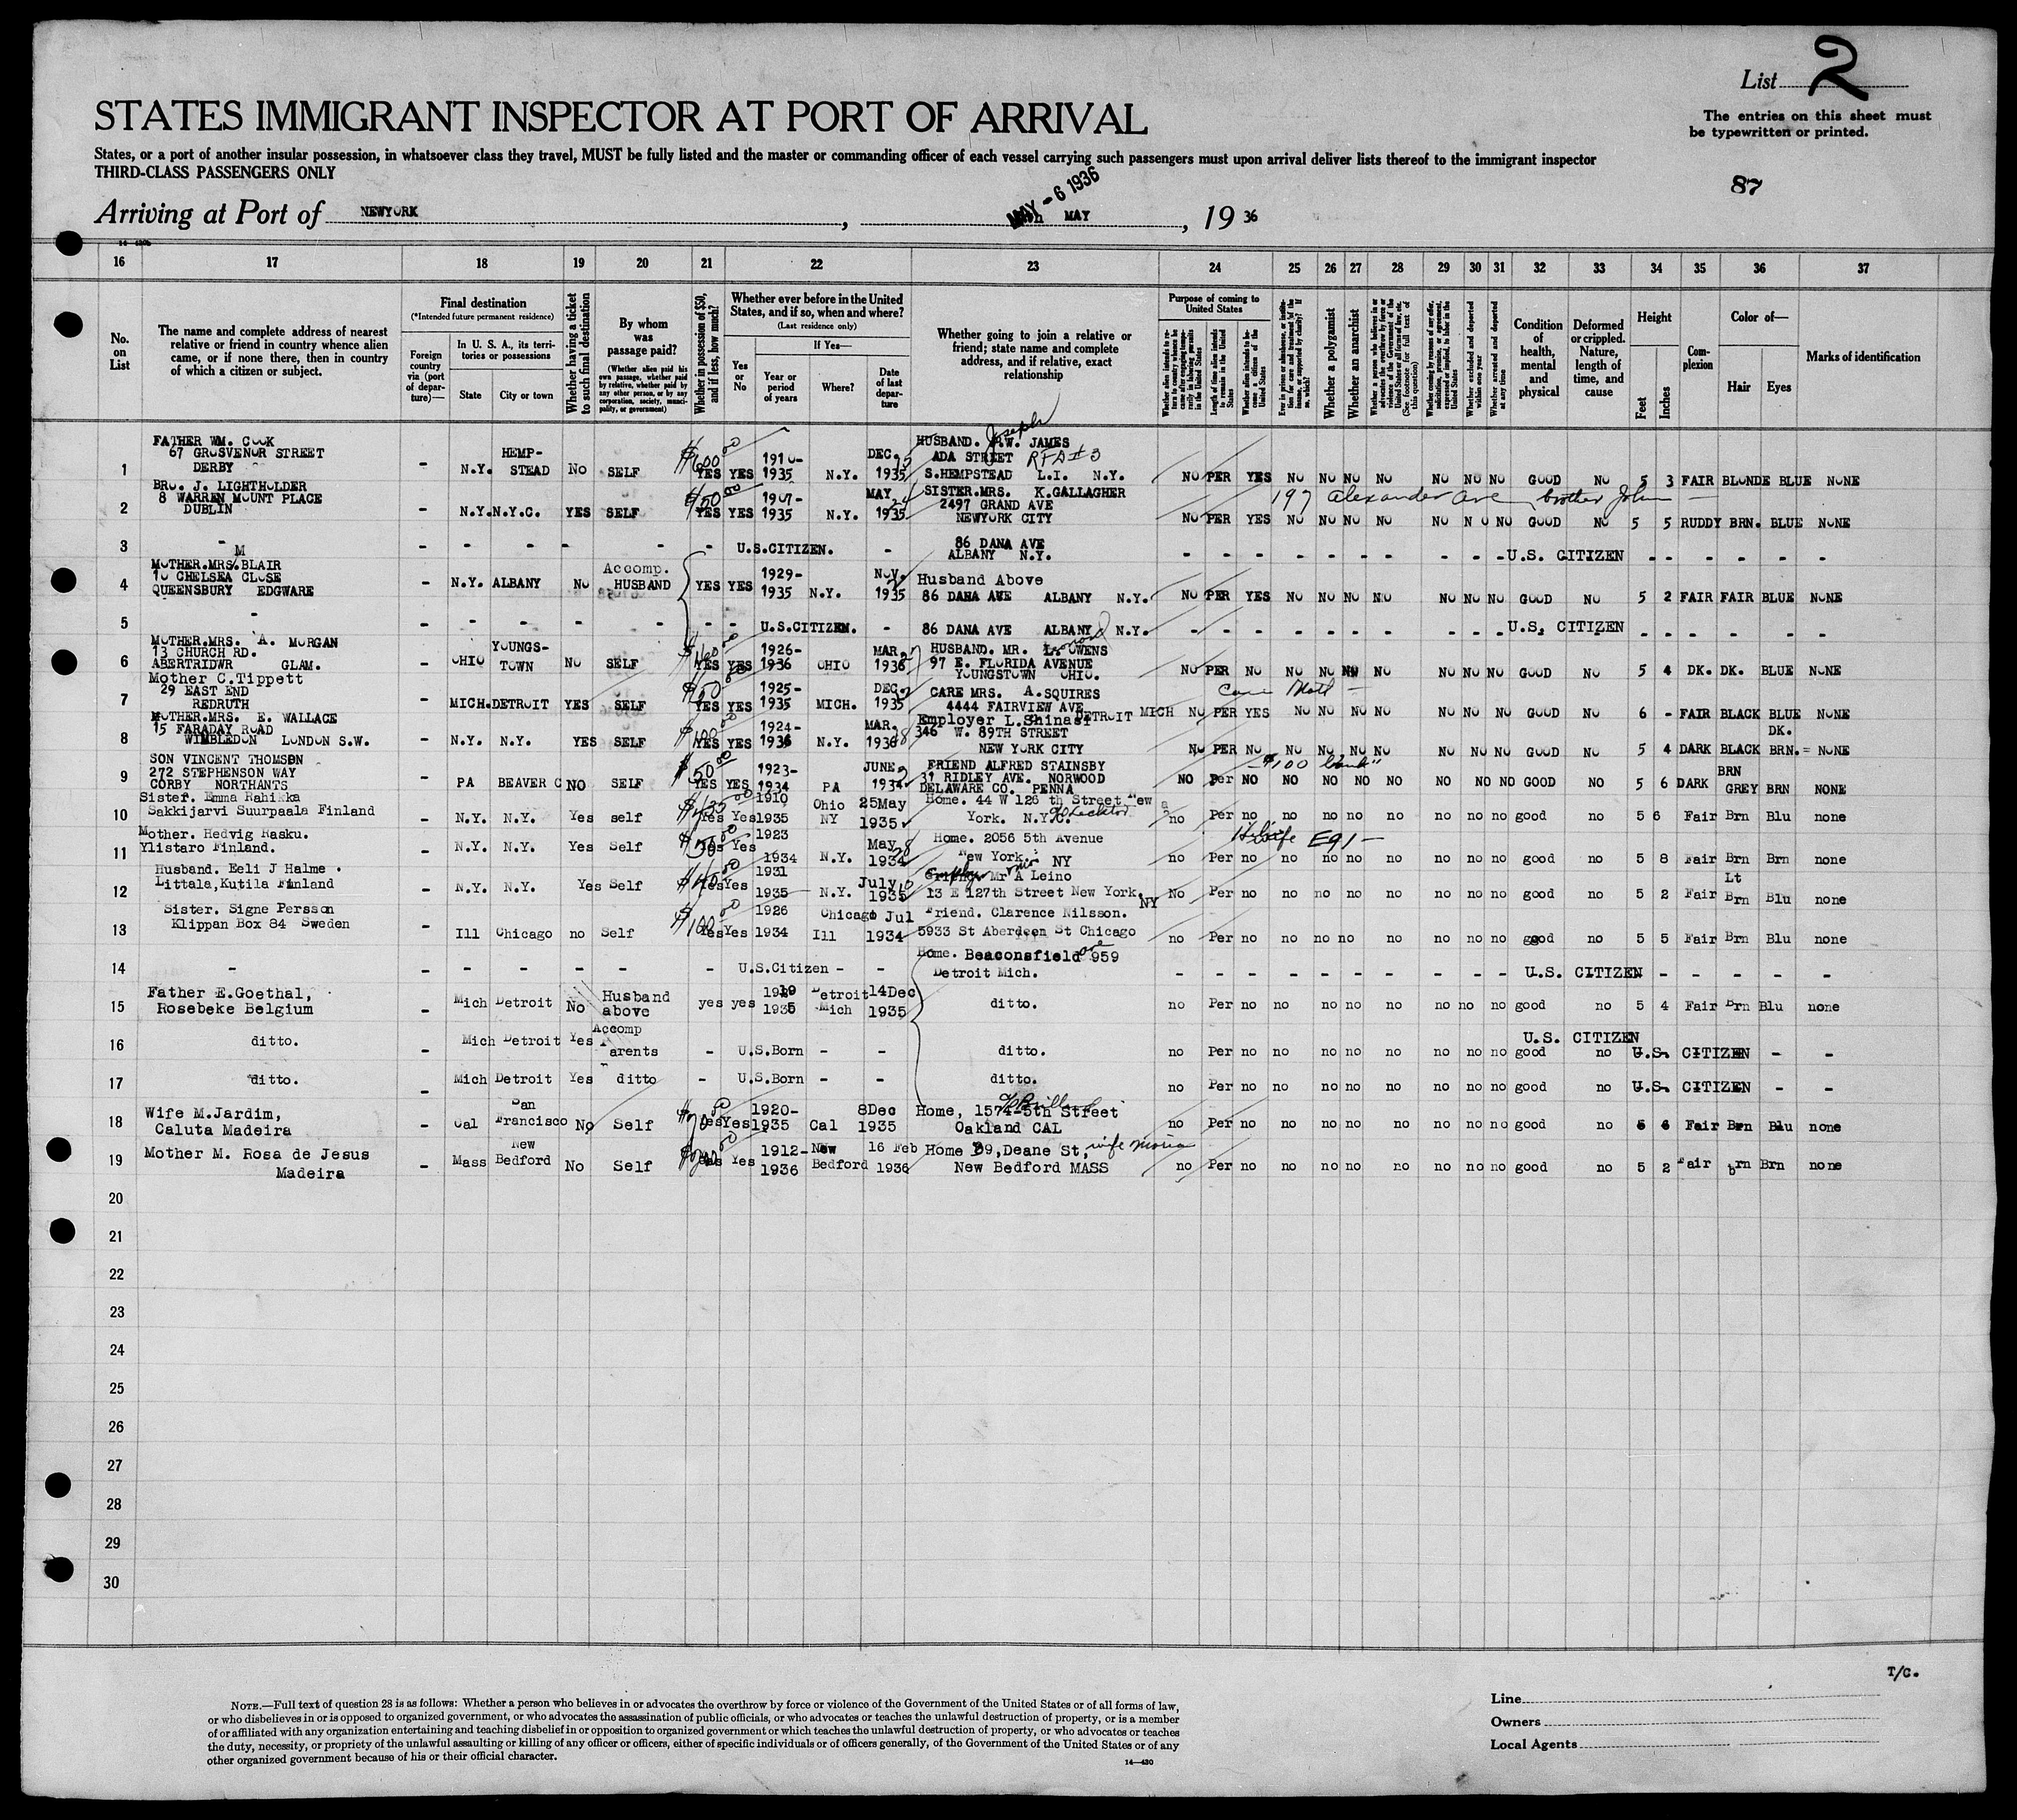 List 2
The entries on this sheet must
be typewritten or printed.
STATES IMMIGRANT INSPECTOR AT PORT OF ARRIVAL
States, or a port of another insular possession, in whatsoever class they travel, MUST be fully listed and the master or commanding officer of each vessel carrying such passengers must upon arrival deliver lists thereof to the immigrant inspector
THIRD-CLASS PASSENGERS ONLY
87
MAY - 6 1936
Arriving at Port of NEWYORK, MAY, 19 36
16 17 18 19 20 21 22 23 24 25 26 27 28 29 30 31 32 33 34 35 36 37
No. on List
The name and complete address of nearest relative or friend in country whence alien came, or if none there, then in country of which a citizen or subject.
Final destination
(*Intended future permanent residence)
Foreign country via (port of departure)—
In U. S. A., its territories or possessions
State
City or town
Whether having a ticket to such final destination
By whom was passage paid?
(Whether alien paid his own passage, whether paid by relative, whether paid by any other person, or by any corporation, society, municipality, or government)
Whether in possession of $50, and if less, how much?
Whether ever before in the United States, and if so, when and where?
(Last residence only)
Yes or No
If Yes—
Year or period of years
Where?
Date of last departure
Whether going to join a relative or friend; state name and complete address, and if relative, exact relationship
Purpose of coming to United States
Length of time alien intends to remain in the United States
Whether alien intends to become a citizen of the United States
Whether a polygamist
Whether an anarchist
Whether excluded and deported within one year
Whether arrested and deported at any time
Condition of health, mental and physical
Deformed or crippled. Nature, length of time, and cause
Height
Feet
Inches
Complexion
Color of—
Hair
Eyes
Marks of identification
1 FATHER WM. COOK 67 GROSVENOR STREET DERBY - N.Y. HEMP-STEAD NO SELF $600 00 YES YES 1910-1935 N.Y. DEC. 1935 HUSBAND. Joseph W. JAMES ADA STREET S.HEMPSTEAD L.I. N.Y. NO PER YES NO NO NO NO NO NO NO GOOD NO 5 3 FAIR BLONDE BLUE NONE
2 BRO. J. LIGHTHOLDER 8 WARREN MOUNT PLACE DUBLIN - N.Y. N.Y.C. YES SELF YES YES 1907-1935 N.Y. MAY 1935 SISTER.MRS. K.GALLAGHER 2497 GRAND AVE NEWYORK CITY 197 Alexander Ave brother John NO PER YES NO NO NO NO NO NO NO GOOD NO 5 5 RUDDY BRN. BLUE NONE
3 - - - - - - - U.S.CITIZEN. - 86 DANA AVE ALBANY N.Y. - - - - - - - - - - U.S. CITIZEN - - - - - -
4 MOTHER.MRS.M BLAIR 10 CHELSEA CLOSE QUEENSBURY EDGWARE - N.Y. ALBANY NO Accomp. HUSBAND YES YES 1929-1935 N.Y. NOV. 1935 Husband Above 86 DANA AVE ALBANY N.Y. NO PER YES NO NO NO NO NO NO NO GOOD NO 5 2 FAIR FAIR BLUE NONE
5 - - - - - - - U.S.CITIZEN. - 86 DANA AVE ALBANY N.Y. - - - - - - - - - - U.S. CITIZEN - - - - - -
6 MOTHER.MRS. A. MORGAN 13 CHURCH RD. ABERTRIDWR GLAM. - OHIO YOUNGS-TOWN NO SELF YES YES 1926-1936 OHIO MAR. 1936 HUSBAND. MR. L. OWENS 97 E. FLORIDA AVENUE YOUNGSTOWN OHIO. NO PER NO NO NO NO NO NO NO NO GOOD NO 5 4 DK. DK. BLUE NONE
7 Mother C.Tippett 29 EAST END REDRUTH - MICH. DETROIT YES SELF YES YES 1925-1935 MICH. DEC. 1935 CARE MRS. A.SQUIRES 4444 FAIRVIEW AVE DETROIT MICH NO PER YES NO NO NO NO NO NO NO GOOD NO 6 - FAIR BLACK BLUE NONE
8 MOTHER.MRS. E. WALLACE 15 FARADAY ROAD WIMBLEDON LONDON S.W. - N.Y. N.Y. YES SELF $100 00 YES YES 1924-1936 N.Y. MAR. 1936 Employer L.Shinasi 346 W. 89TH STREET NEW YORK CITY NO PER NO NO NO NO NO NO NO NO GOOD NO 5 4 DARK BLACK DK. BRN. - NONE
9 SON VINCENT THOMSON 272 STEPHENSON WAY CORBY NORTHANTS - PA BEAVER C NO SELF $50 00 YES YES 1923-1934 PA JUNE 1934 FRIEND ALFRED STAINSBY 31 RIDLEY AVE. NORWOOD DELAWARE CO. PENNA $100 bank NO Per NO NO NO NO NO NO NO NO GOOD NO 5 6 DARK BRN GREY BRN NONE
10 Sister. Emma Rahikka Sakkijarvi Suurpaala Finland - N.Y. N.Y. Yes self Yes Yes 1910 1935 Ohio NY 25May 1935 Home. 44 W 126 th Street New York. N.Y. no Per no no no no no no no no good no 5 6 Fair Brn Blu none
11 Mother. Hedvig Rasku. Ylistaro Finland. - N.Y. N.Y. Yes Self Yes Yes 1923 1934 N.Y. May 1934 Home. 2056 5th Avenue New York. NY no Per no no no no no no no no good no 5 8 Fair Brn Brn none
12 Husband. Eeli J Halme. Littala,Kutila Finland - N.Y. N.Y. Yes Self Yes Yes 1931 1935 N.Y. July 1935 Mr A Leino 13 E 127th Street New York. NY No Per no no no no no no no no good no 5 2 Fair Lt Brn Blu none
13 Sister. Signe Persson Klippan Box 84 Sweden - Ill Chicago no Self $100 00 Yes Yes 1926 1934 Chicago Ill 1 Jul 1934 Friend. Clarence Nilsson. 5933 St Aberdeen St Chicago no Per no no no no no no no no good no 5 5 Fair Brn Blu none
14 - - - - - - - U.S.Citizen - - Home. Beaconsfield ave 959 Detroit Mich. - - - - - - - - - - U.S. CITIZEN - - - - - -
15 Father E.Goethal, Rosebeke Belgium - Mich Detroit No Husband above yes yes 1935 Detroit Mich 14Dec 1935 ditto. no Per no no no no no no no no good no 5 4 Fair Brn Blu none
16 ditto. - Mich Detroit Yes Accomp Parents - U.S.Born - - ditto. no Per no no no no no no no no good no U.S. CITIZEN U.S. CITIZEN - -
17 ditto. - Mich Detroit Yes ditto - U.S.Born - - ditto. no Per no no no no no no no no good no U.S. CITIZEN - -
18 Wife M.Jardim, Caluta Madeira - Cal San Francisco No Self Yes Yes 1920-1935 Cal 8Dec 1935 Home, 1574-5th Street Oakland CAL no Per no no no no no no no no good no 5 6 Fair Brn Blu none
19 Mother M. Rosa de Jesus Madeira - Mass New Bedford No Self Yes Yes 1912-1936 New Bedford 16 Feb 1936 Home 29,Deane St, wife Maria New Bedford MASS no Per no no no no no no no no good no 5 2 Fair brn Brn none
20
21
22
23
24
25
26
27
28
29
30
T/C.
NOTE.—Full text of question 28 is as follows: Whether a person who believes in or advocates the overthrow by force or violence of the Government of the United States or of all forms of law,
or who disbelieves in or is opposed to organized government, or who advocates the assassination of public officials, or who advocates or teaches the unlawful destruction of property, or is a member
of or affiliated with any organization entertaining and teaching disbelief in or opposition to organized government or which teaches the unlawful destruction of property, or who advocates or teaches
the duty, necessity, or propriety of the unlawful assaulting or killing of any officer or officers, either of specific individuals or of officers generally, of the Government of the United States or of any
other organized government because of his or their official character.
14—430
Line
Owners
Local Agents